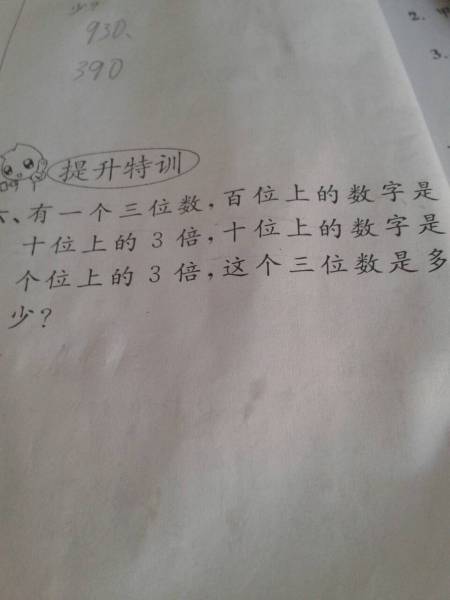 少?
930、
390
2.
3.
提升特训
六、有一个三位数,百位上的数字是
十位上的 3 倍,十位上的数字是
个位上的 3 倍,这个三位数是多
少?